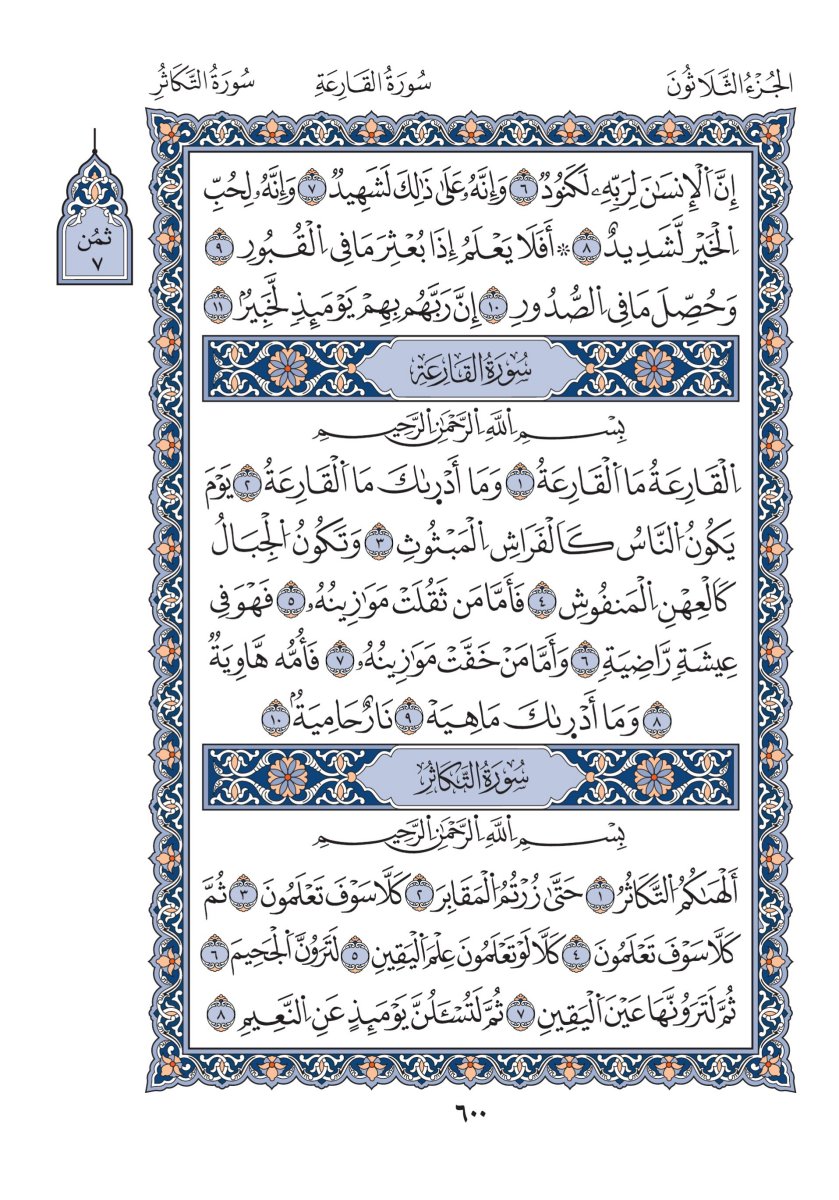 الجُزْءُ الثَّلَاثُونَ سُورَةُ القَارِعَةِ سُورَةُ التَّكَاثُرِ
ثمُن
٧
إِنَّ اَ۬لْإِنسَٰنَ لِرَبِّهِۦ لَكَنُودٌ ٦ وَإِنَّهُۥ عَلَىٰ ذَٰلِكَ لَشَهِيدٌ ٧ وَإِنَّهُۥ لِحُبِّ
اِ۬لْخَيْرِ لَشَدِيدٌ ٨ ۞ أَفَلَا يَعْلَمُ إِذَا بُعْثِرَ مَا فِي اِ۬لْقُبُورِ ٩
وَحُصِّلَ مَا فِي اِ۬لصُّدُورِ ١٠ إِنَّ رَبَّهُم بِهِمْ يَوْمَئِذٍ لَّخَبِيرٌ ١١
سُورَةُ القَارِعَةِ
بِسْمِ اِ۬للَّهِ اِ۬لرَّحْمَٰنِ اِ۬لرَّحِيمِ
اِ۬لْقَارِعَةُ مَا اَ۬لْقَارِعَةُ ١ وَمَا أَدْر۪ىٰكَ مَا اَ۬لْقَارِعَةُ ٢ يَوْمَ
يَكُونُ اُ۬لنَّاسُ كَالْفَرَاشِ اِ۬لْمَبْثُوثِ ٣ وَتَكُونُ اُ۬لْجِبَالُ
كَالْعِهْنِ اِ۬لْمَنفُوشِ ٤ فَأَمَّا مَن ثَقُلَتْ مَوَٰزِينُهُۥ ٥ فَهْوَ فِي
عِيشَةٍ رَّاضِيَةٍ ٦ وَأَمَّا مَنْ خَفَّتْ مَوَٰزِينُهُۥ ٧ فَأُمُّه هَّاوِيَةٌ
٨ وَمَا أَدْر۪ىٰكَ مَا هِيَهْ ٩ نَارٌ حَامِيَةٌ ١٠
سُورَةُ التَّكَاثُرِ
بِسْمِ اِ۬للَّهِ اِ۬لرَّحْمَٰنِ اِ۬لرَّحِيمِ
أَلْهَىٰكُمُ اُ۬لتَّكَاثُرُ ١ حَتَّىٰ زُرْتُمُ اُ۬لْمَقَابِرَ ٢ كَلَّا سَوْفَ تَعْلَمُونَ ٣ ثُمَّ
كَلَّا سَوْفَ تَعْلَمُونَ ٤ كَلَّا لَوْ تَعْلَمُونَ عِلْمَ اَ۬لْيَقِينِ ٥ لَتَرَوُنَّ اَ۬لْجَحِيمَ ٦
ثُمَّ لَتَرَوُنَّهَا عَيْنَ اَ۬لْيَقِينِ ٧ ثُمَّ لَتُسْـَٔلُنَّ يَوْمَئِذٍ عَنِ اِ۬لنَّعِيمِ ٨
٦٠٠